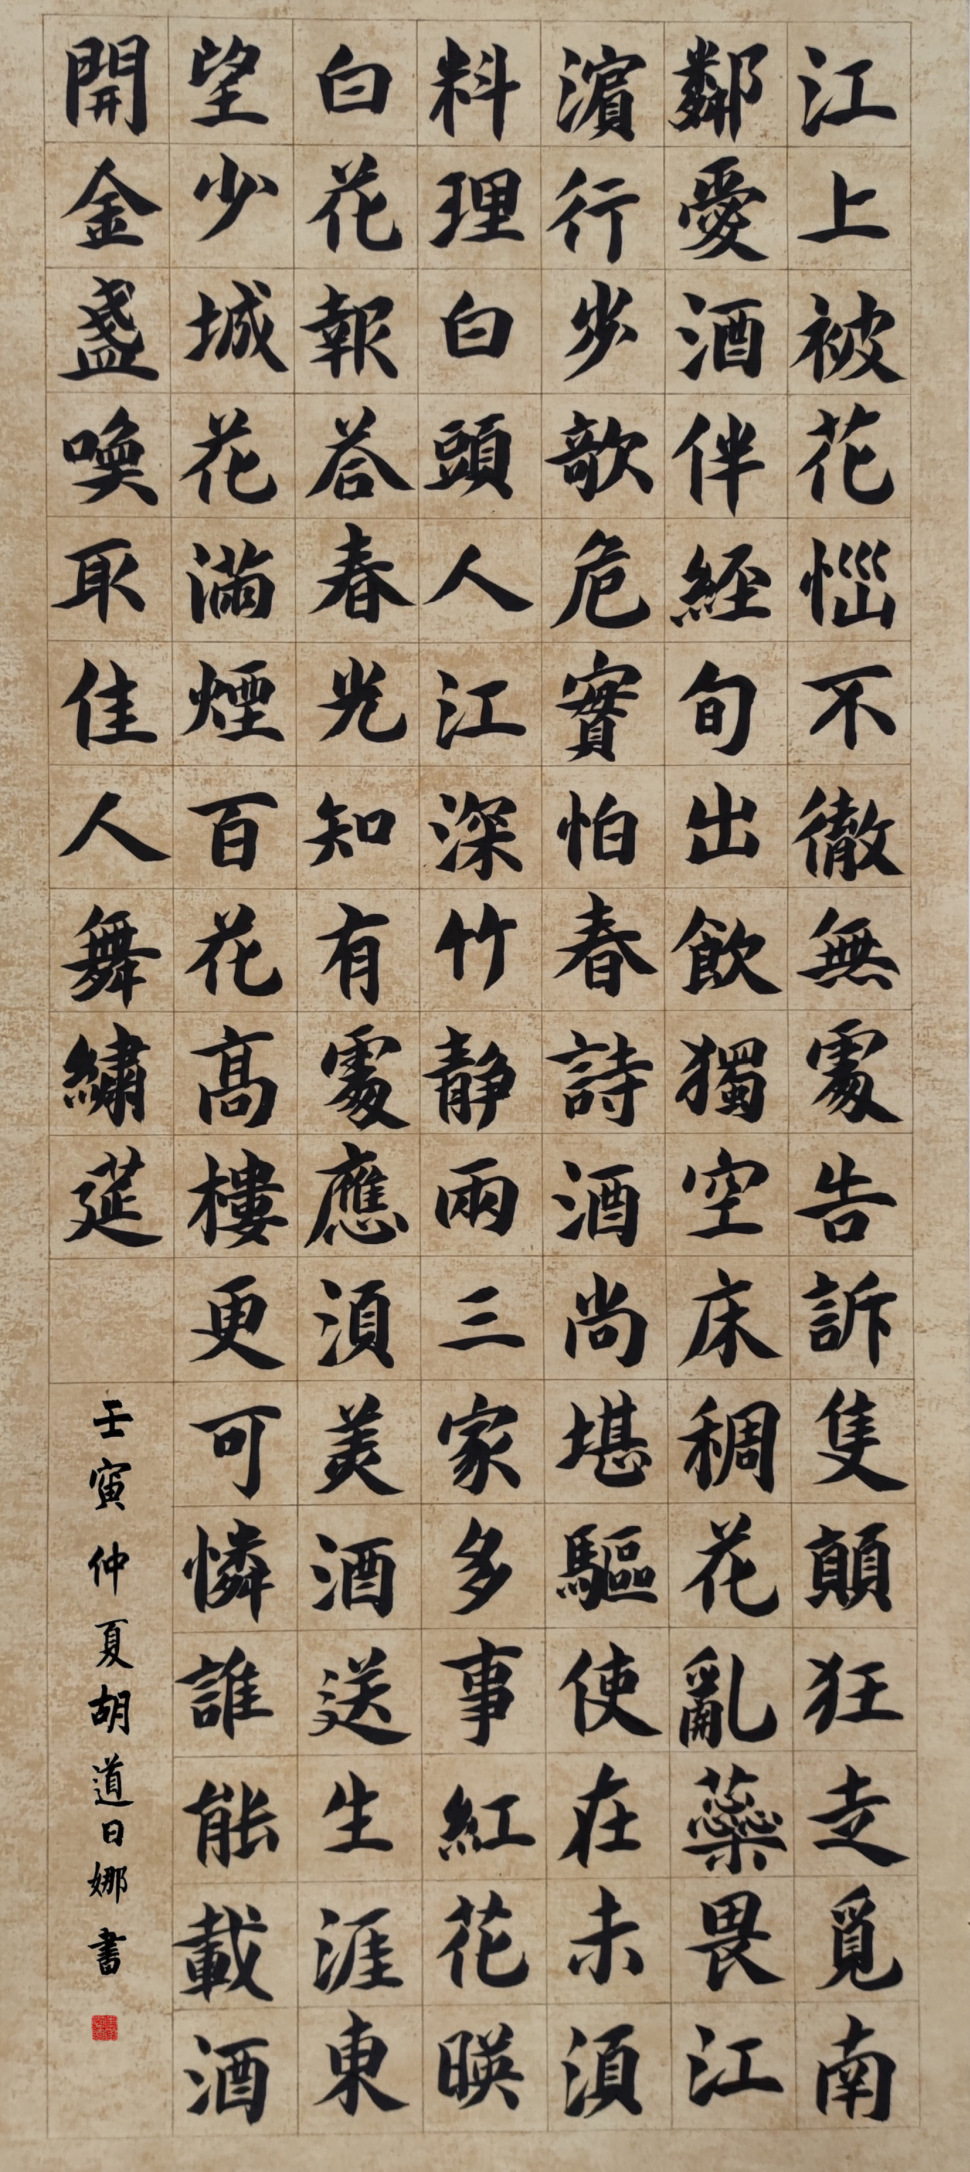 江上被花惱不徹無處告訴隻顛狂走覓南
鄰愛酒伴經旬出飲獨空床稠花亂蘂畏江
濵行步欹危實怕春詩酒尚堪驅使在未須
料理白頭人江深竹静兩三家多事紅花暎
白花報荅春光知有處應須美酒送生涯東
望少城花滿煙百花髙樓更可憐誰能載酒
開金盞喚取佳人舞繡莚
壬寅仲夏胡道日娜書